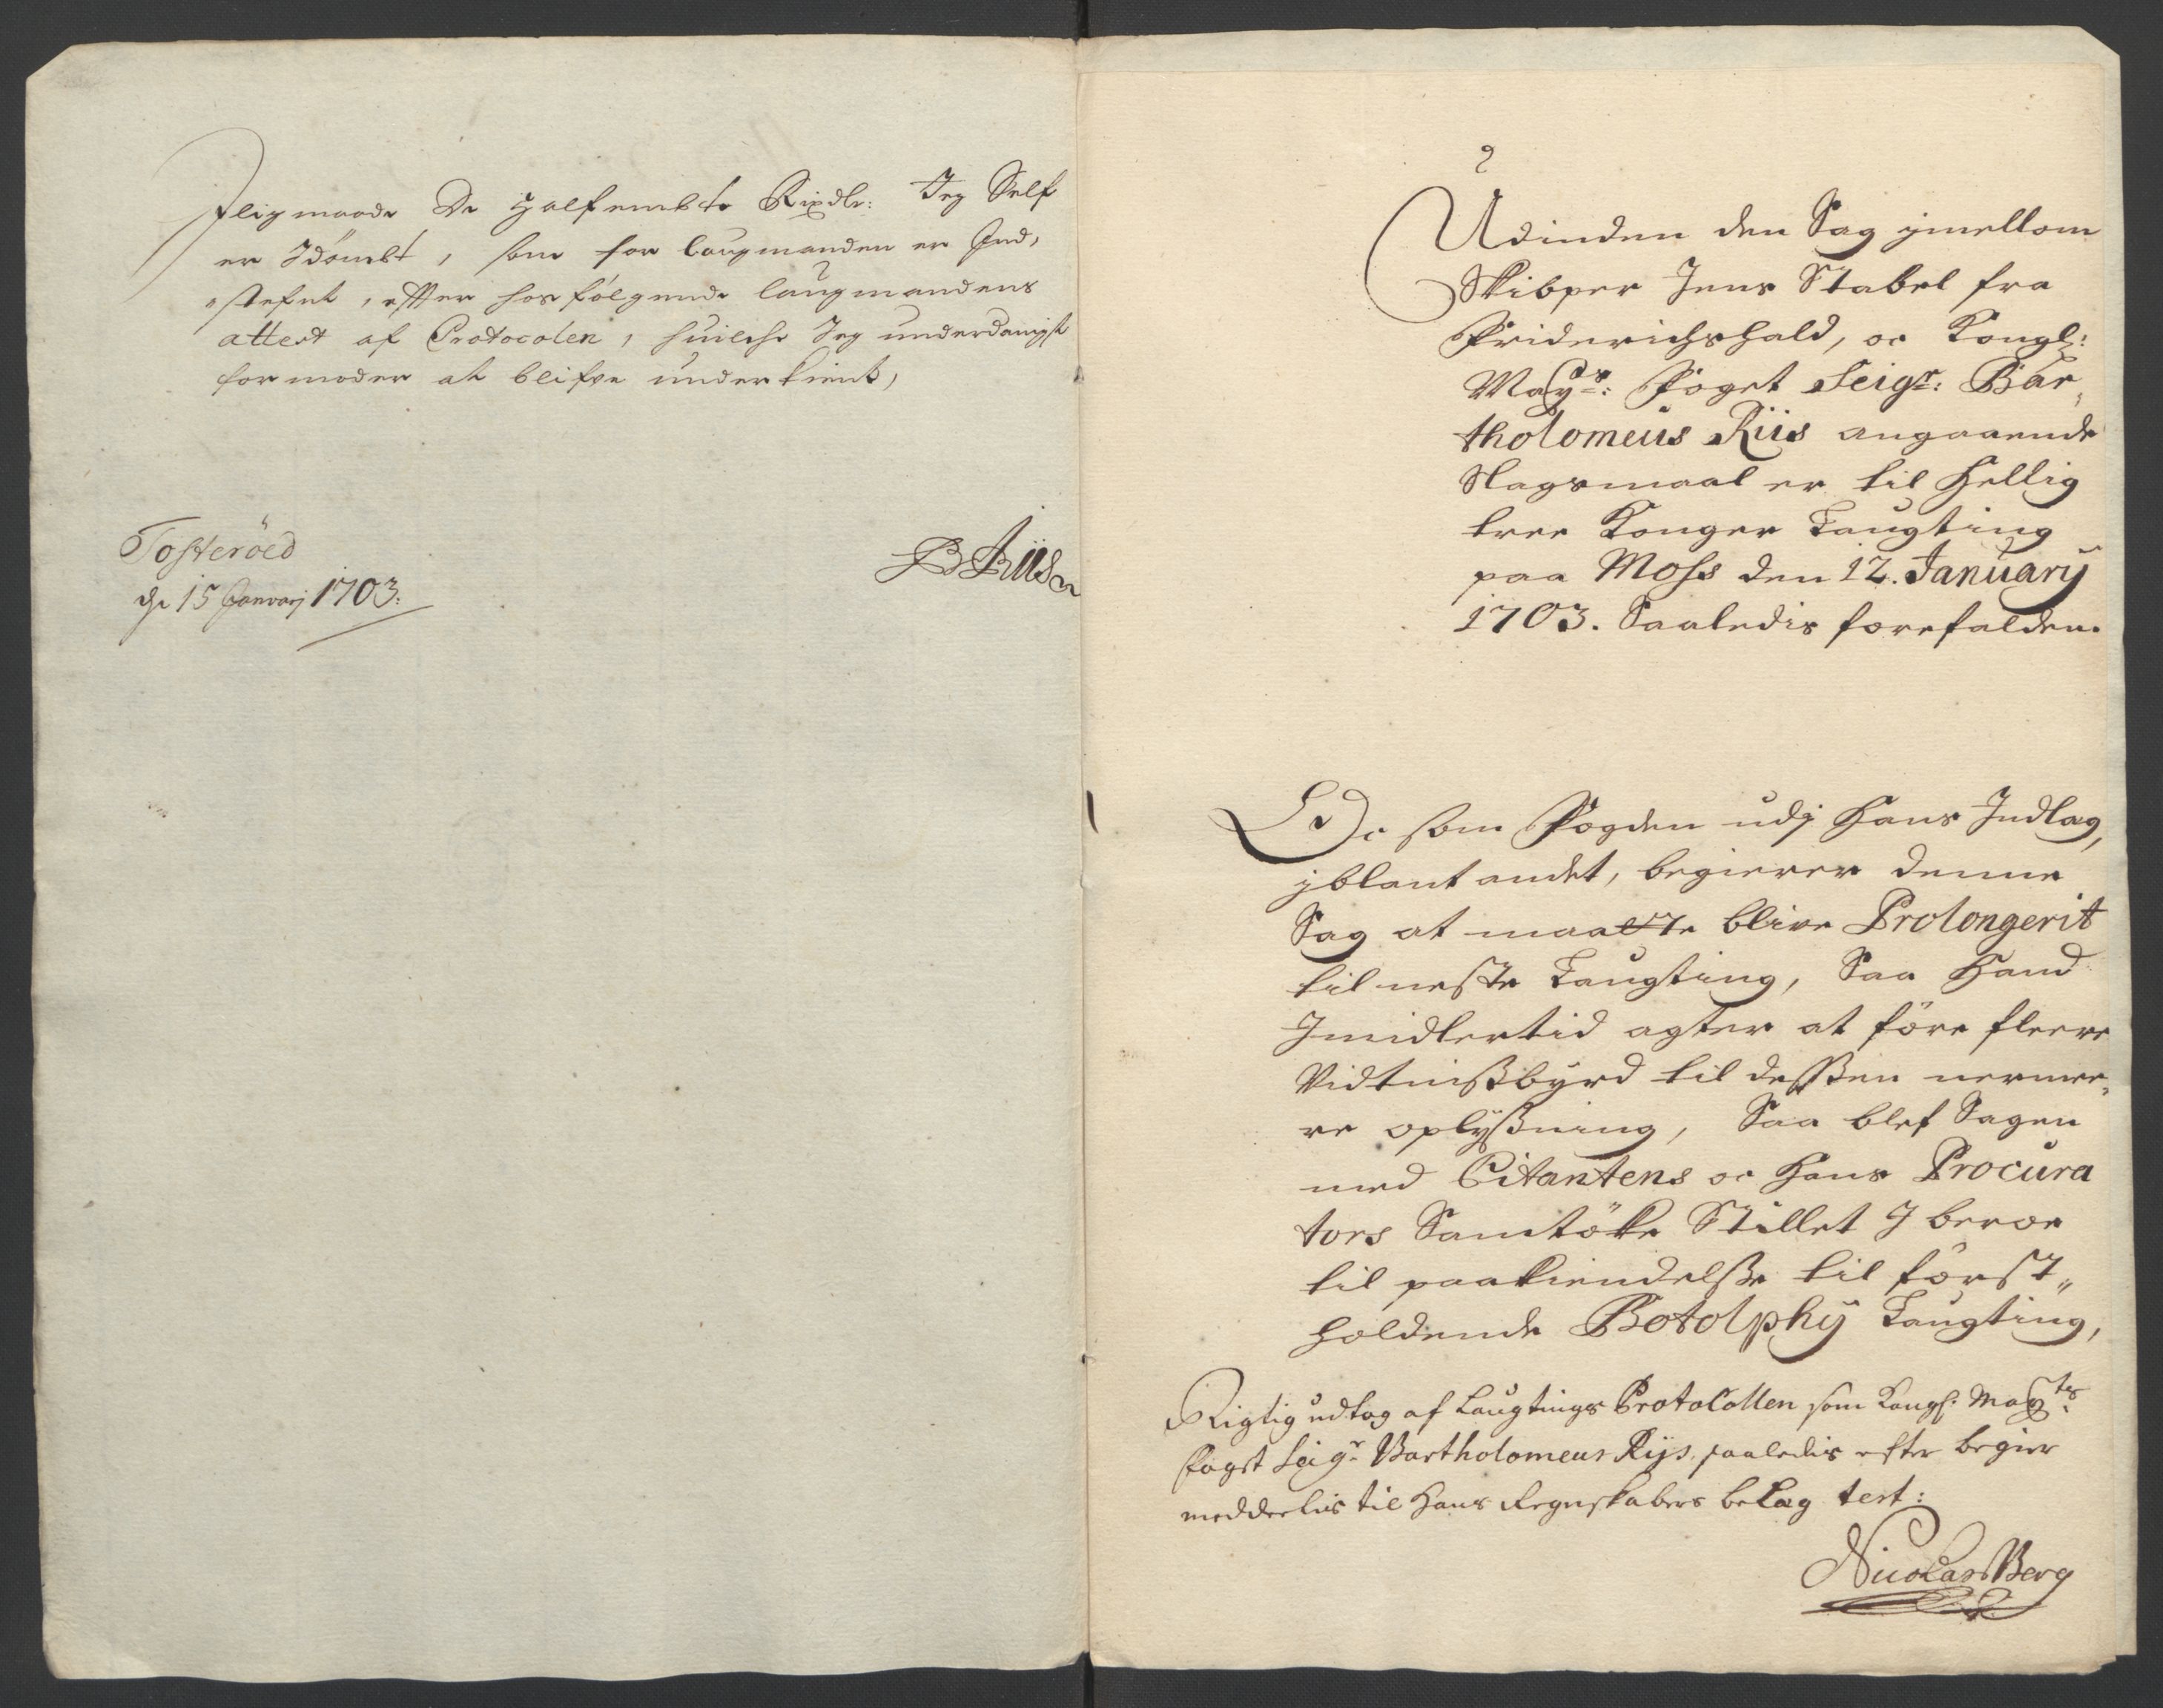 Iligmaade De Halfembte Rixdlr: Jeg Self
er Idömbt, som for laugmanden er Ind,
stefnt, effter hosfölgende laugmandens
attest af Protocolen, huilche Jeg underdanigst
formoder at blifve underkient,
Tosteröed
de 15 Janvarj 1703:
B Riis
2
Udinden den Sag ymellom
Skibper Jens Stabel fra
Friderichshald, oc Kongl:
Mayts: Foget Seigr: Bar,
tholomeus Riis angaaende
Slagsmaal er til Hellig
tree Konger Laugting
paa Moss den 12. January
1703. Saaledis forefalden.
Oc som Fogden udj Hans Indlag,
yblant andet, begierer denne
Sag at maatte blive Prolongerit
til neste Laugting, Saa Hand
Imidlertid agter at före fleere
Vidtnißbyrd til deßen nerme,
re oplyßning, Saa blef Sagen
med Citantens oc Hans Procura
tors Samtöke Stillet J beroe
til paakiendelße til först„
holdende Botolphy Laugting,
Rigtig udtog af Laugtings Protocollen som Kongl: Mayts:
Fogst Seigr Bartholomeus Rijs saaledis efter begier
meddeelis til Hans Regnskabers belag test:
Nicolas Berg